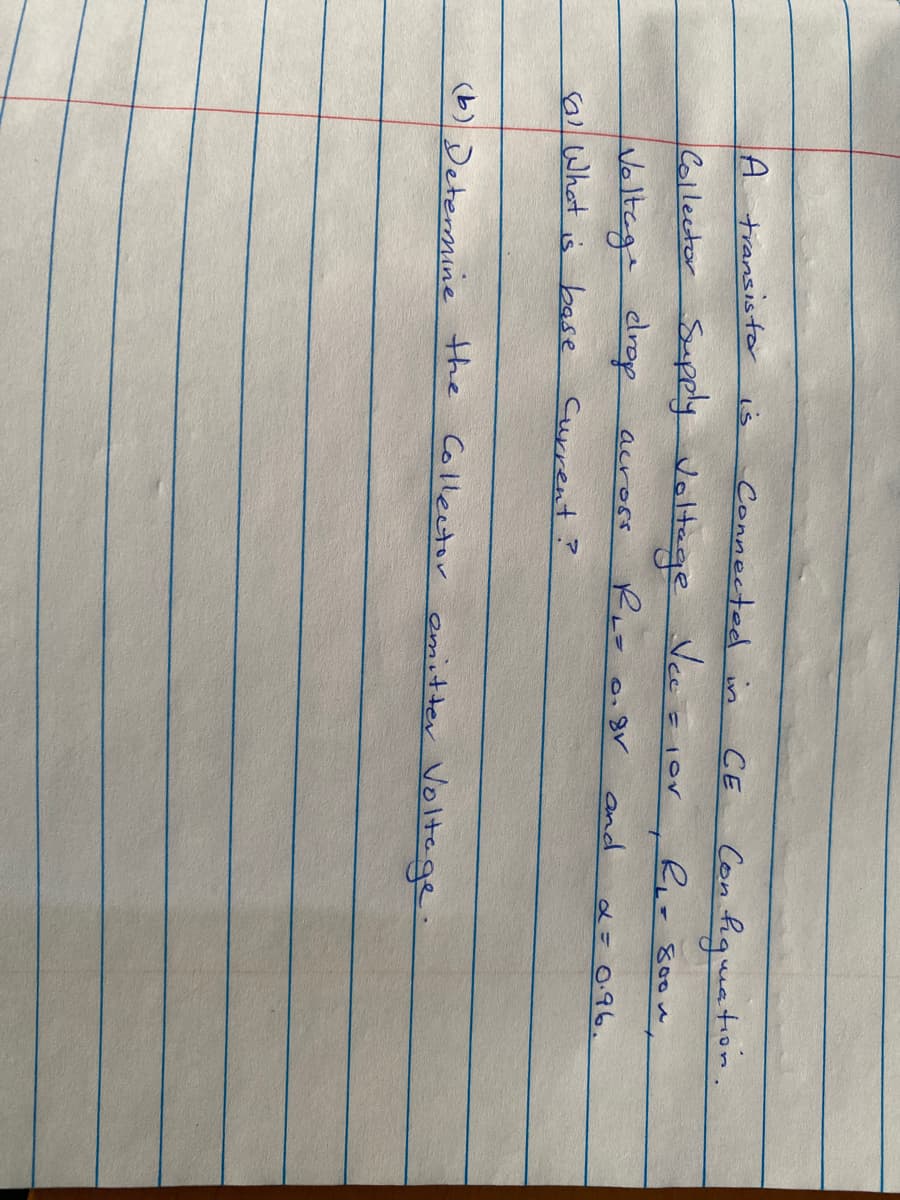 A transistor is Connected in CE Configuration.
Collector Supply Voltage Vcc = 10V, RL = 800 Ω,
Voltage drop across RL = 0.8V and α = 0.96.
(a) What is base Current?
(b) Determine the Collector emitter Voltage.